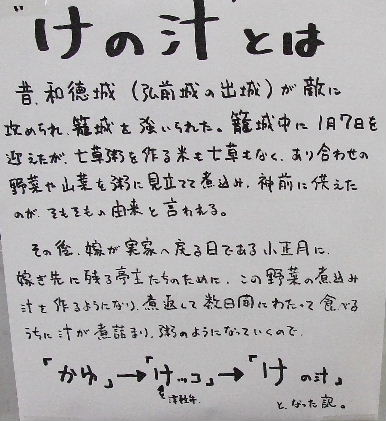 "けの汁"とは
昔、和徳城（弘前城の出城）が敵に
攻められ、籠城を強いられた。籠城中に1月7日を
迎えたが、七草粥を作る米も七草もなく、あり合わせの
野菜や山菜を粥に見立てて煮込み、神前に供えた
のが、そもそもの由来と言われる。
その後、嫁が実家へ戻る日である小正月に、
嫁ぎ先に残る亭主たちのために、この野菜の煮込み
汁を作るようになり、煮返して数日間にわたって食べる
うちに汁が煮詰まり、粥のようになっていくので、
「かゆ」→「けッコ」→「けの汁」
津軽弁
と、なった訳。